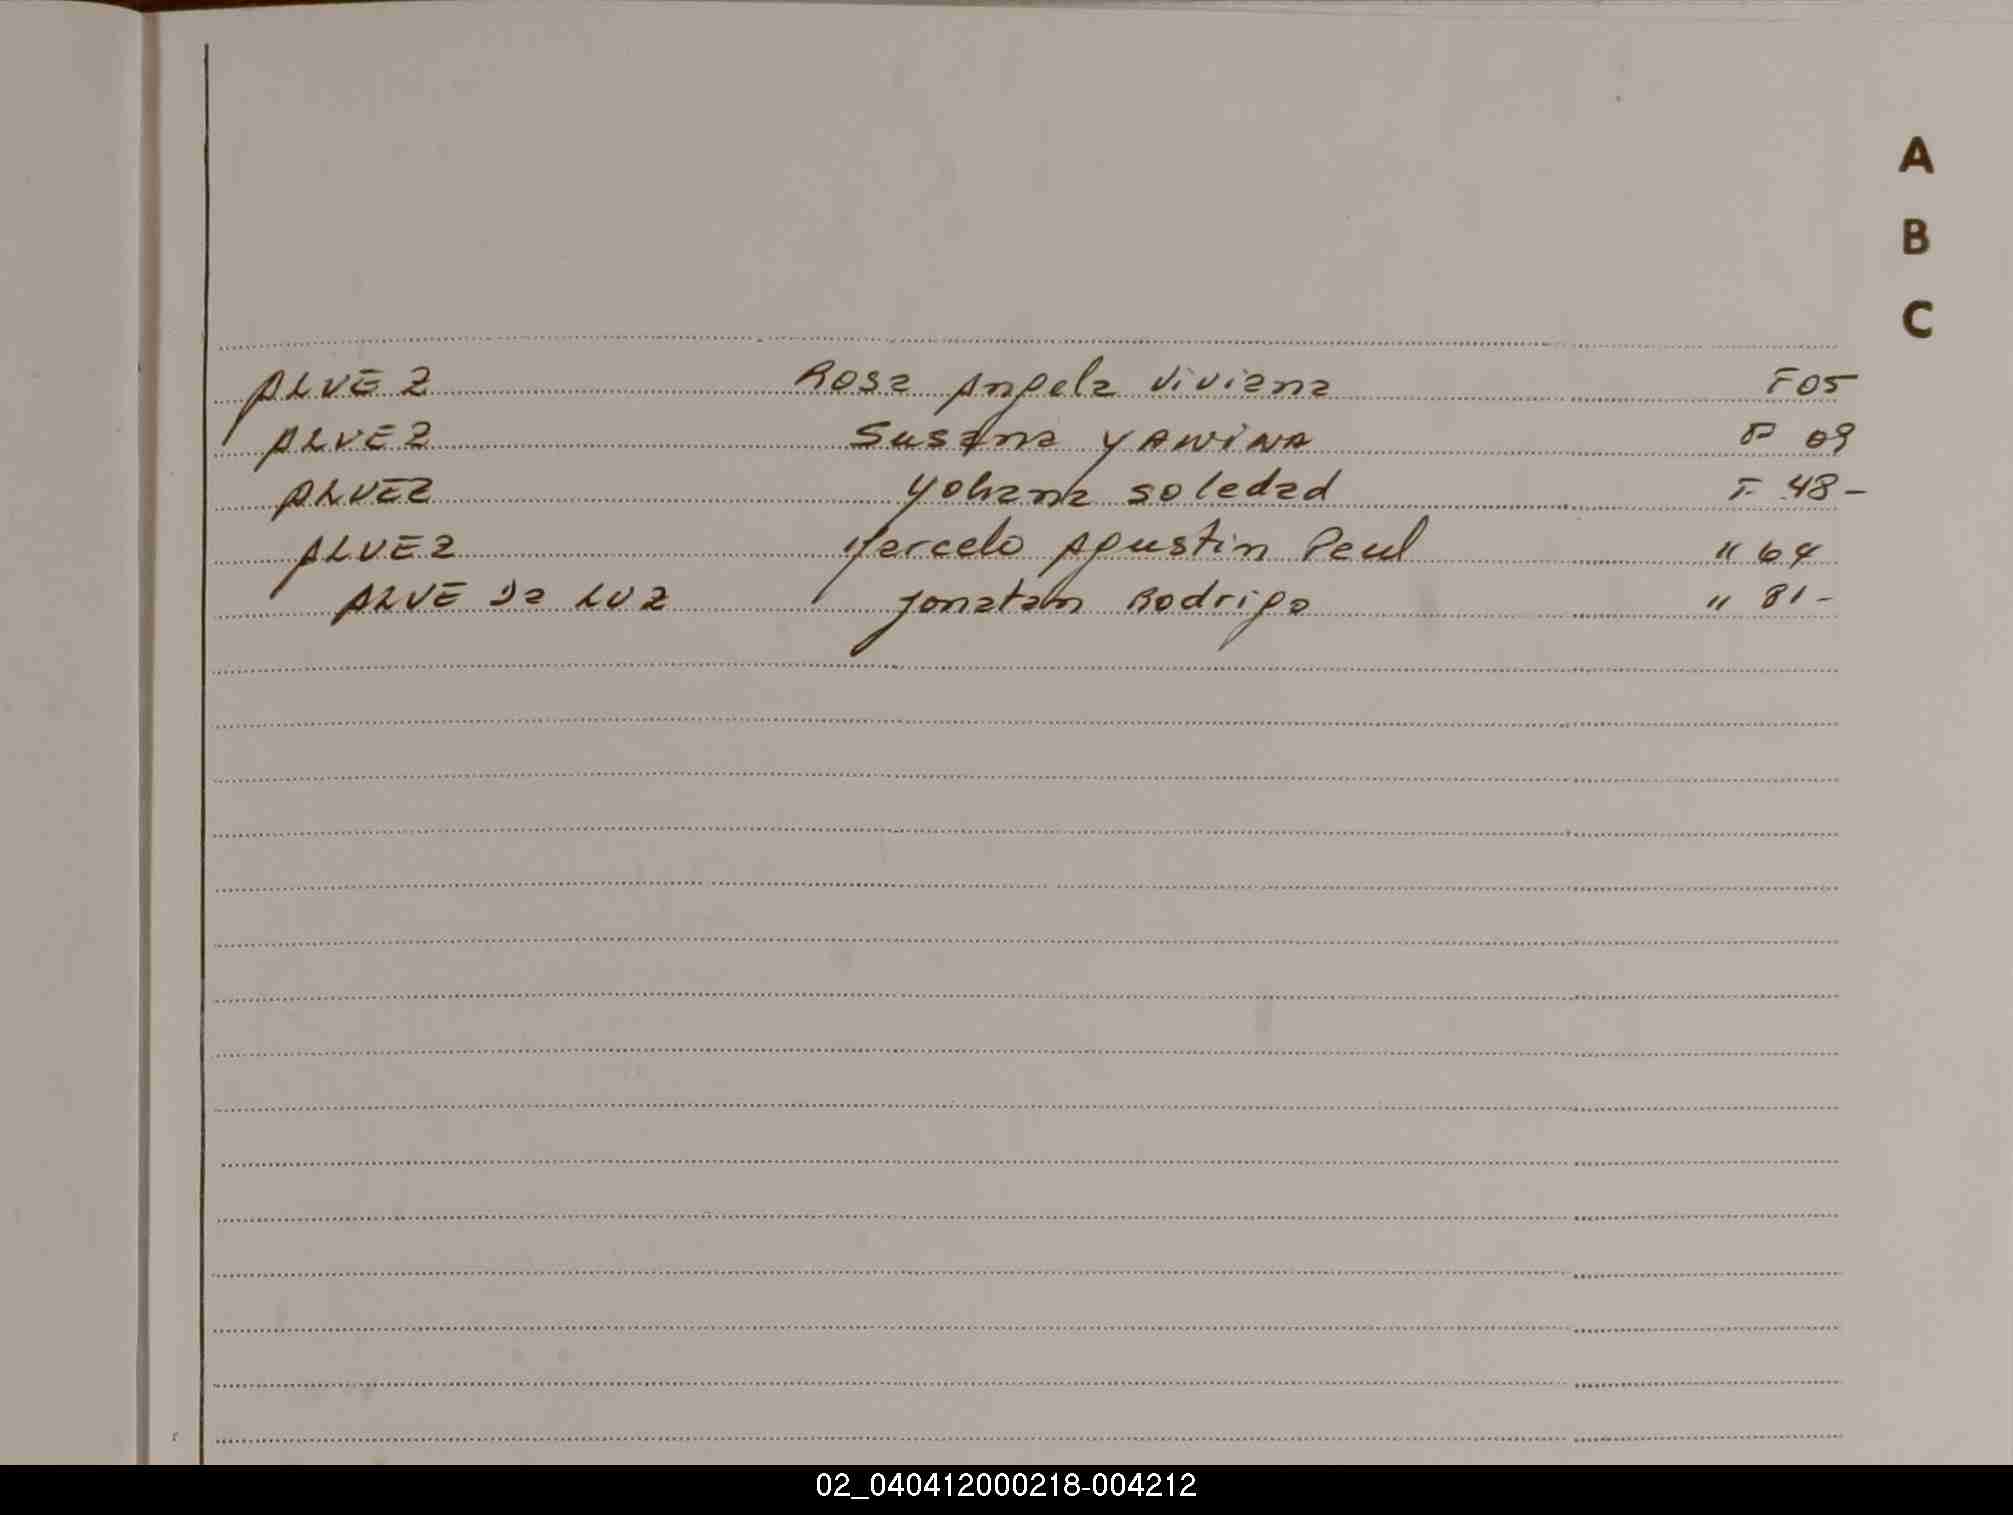 A
B
C
ALVEZ Rosa Angela Viviana F 05
ALVEZ Susana YANINA F 09
ALVEZ Yohana Soledad F. 48-
ALVEZ Marcelo Agustin Paul " 64
ALVE Da LUZ Jonatan Rodrigo " 81-
02_040412000218-004212